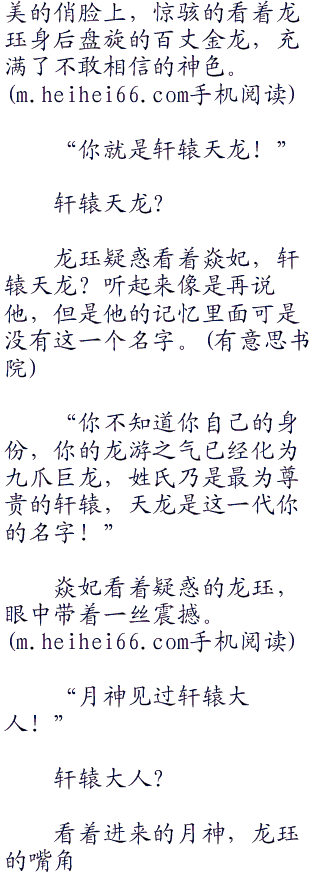 美的俏脸上，惊骇的看着龙
珏身后盘旋的百丈金龙，充
满了不敢相信的神色。
(m.heihei66.com手机阅读)
“你就是轩辕天龙！”
轩辕天龙？
龙珏疑惑看着焱妃，轩
辕天龙？听起来像是再说
他，但是他的记忆里面可是
没有这一个名字。(有意思书
院)
“你不知道你自己的身
份，你的龙游之气已经化为
九爪巨龙，姓氏乃是最为尊
贵的轩辕，天龙是这一代你
的名字！”
焱妃看着疑惑的龙珏，
眼中带着一丝震撼。
(m.heihei66.com手机阅读)
“月神见过轩辕大
人！”
轩辕大人？
看着进来的月神，龙珏
的嘴角